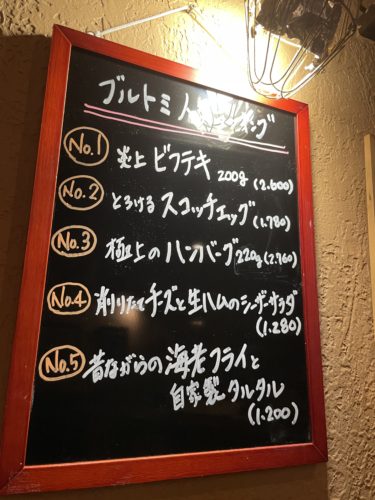 ブルトミ 人気ランキング
No.1 炎上 ビフテキ 200g (2.600)
No.2 とろける スコッチエッグ (1.780)
No.3 極上のハンバーグ 220g (2.760)
No.4 削りたてチーズと生ハムのシーザーサラダ
(1.280)
No.5 昔ながらの海老フライと
自家製 タルタル
(1.200)